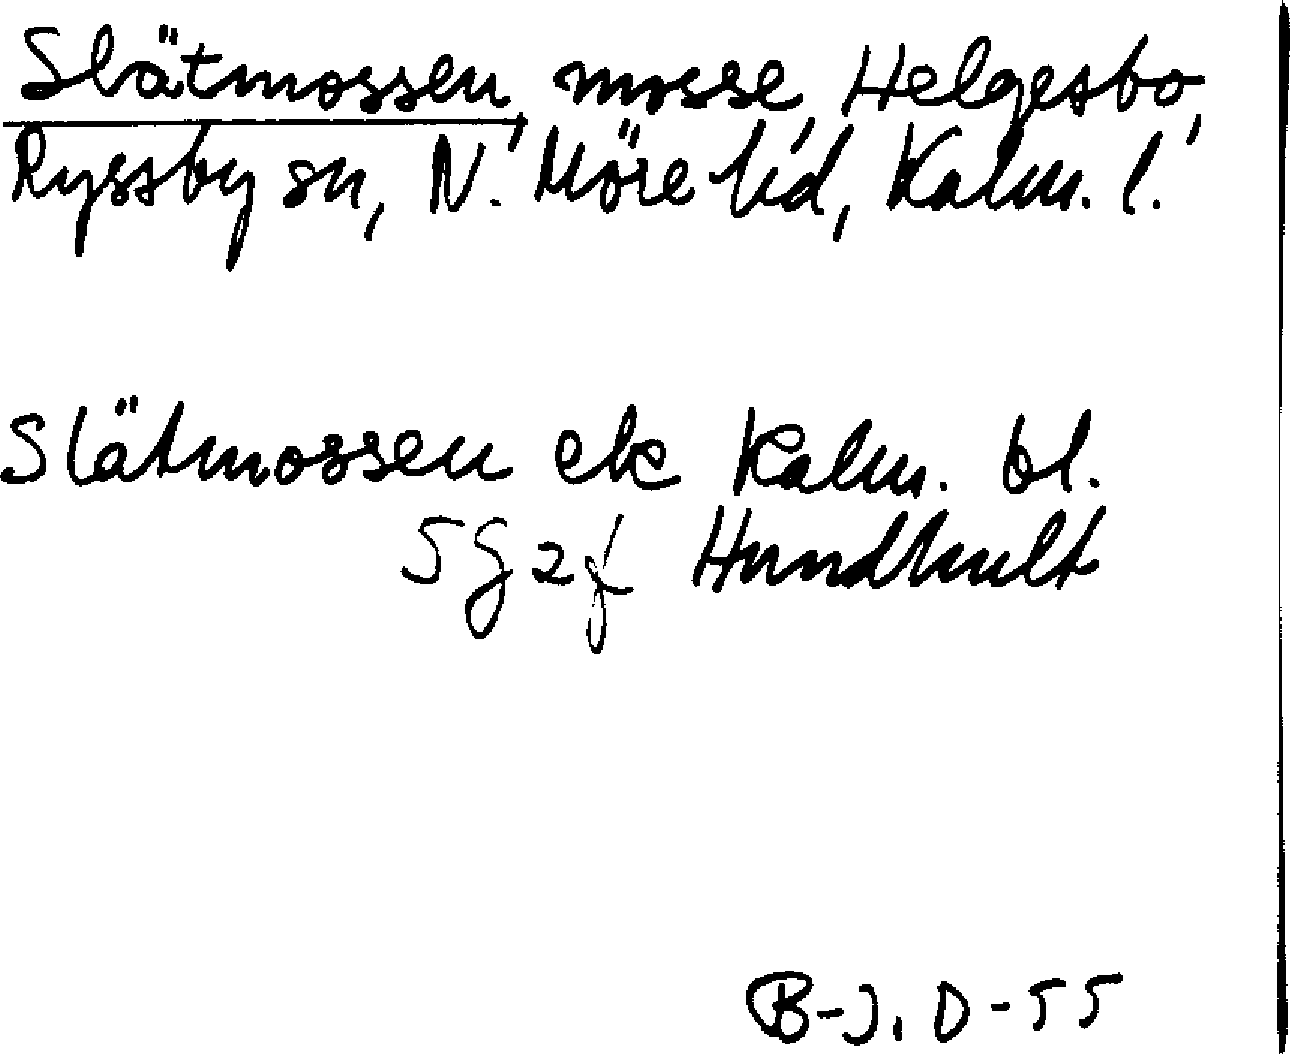 Slätmossen, mosse, Helgesbo,
Ryssby sn, N. Möre hd, Kalm. l.
Slätmossen ek Kalm. bl.
5g2f Hundhult
B-J. D-55